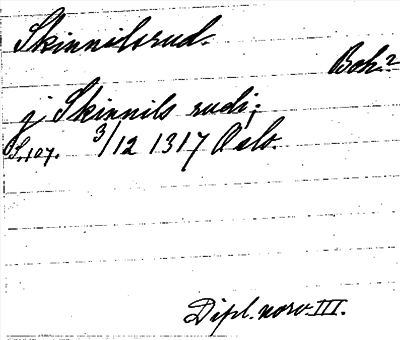 Skinnilsrud.
Boh.?
j Skinnils rudi;
S. 107. 3/12 1317 Oslo.
Dipl. norv. III.